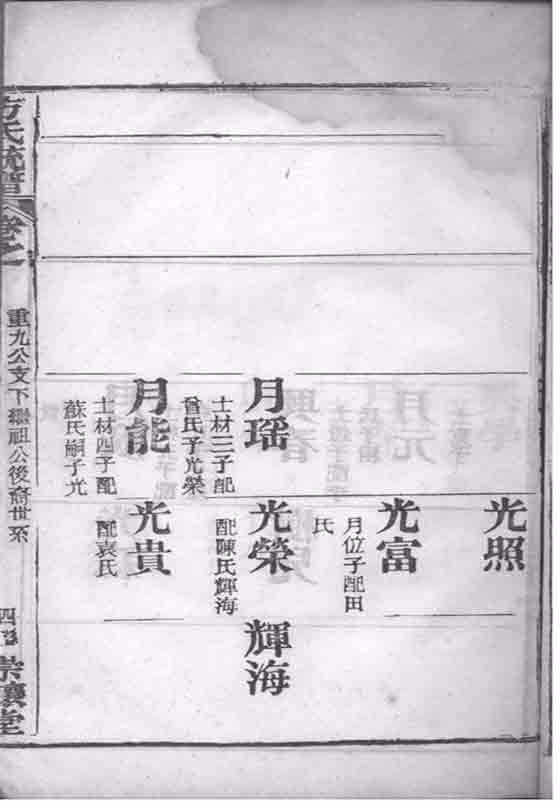 光照
光富
月位子配田
氏
月瑶
士材三子配
曾氏子光榮
光榮
配陳氏輝海
輝海
月能
士材四子配
蘇氏嗣子光
光貴
配袁氏
方氏統譜
卷之
重九公支下繼祖公後裔世系
四
堂